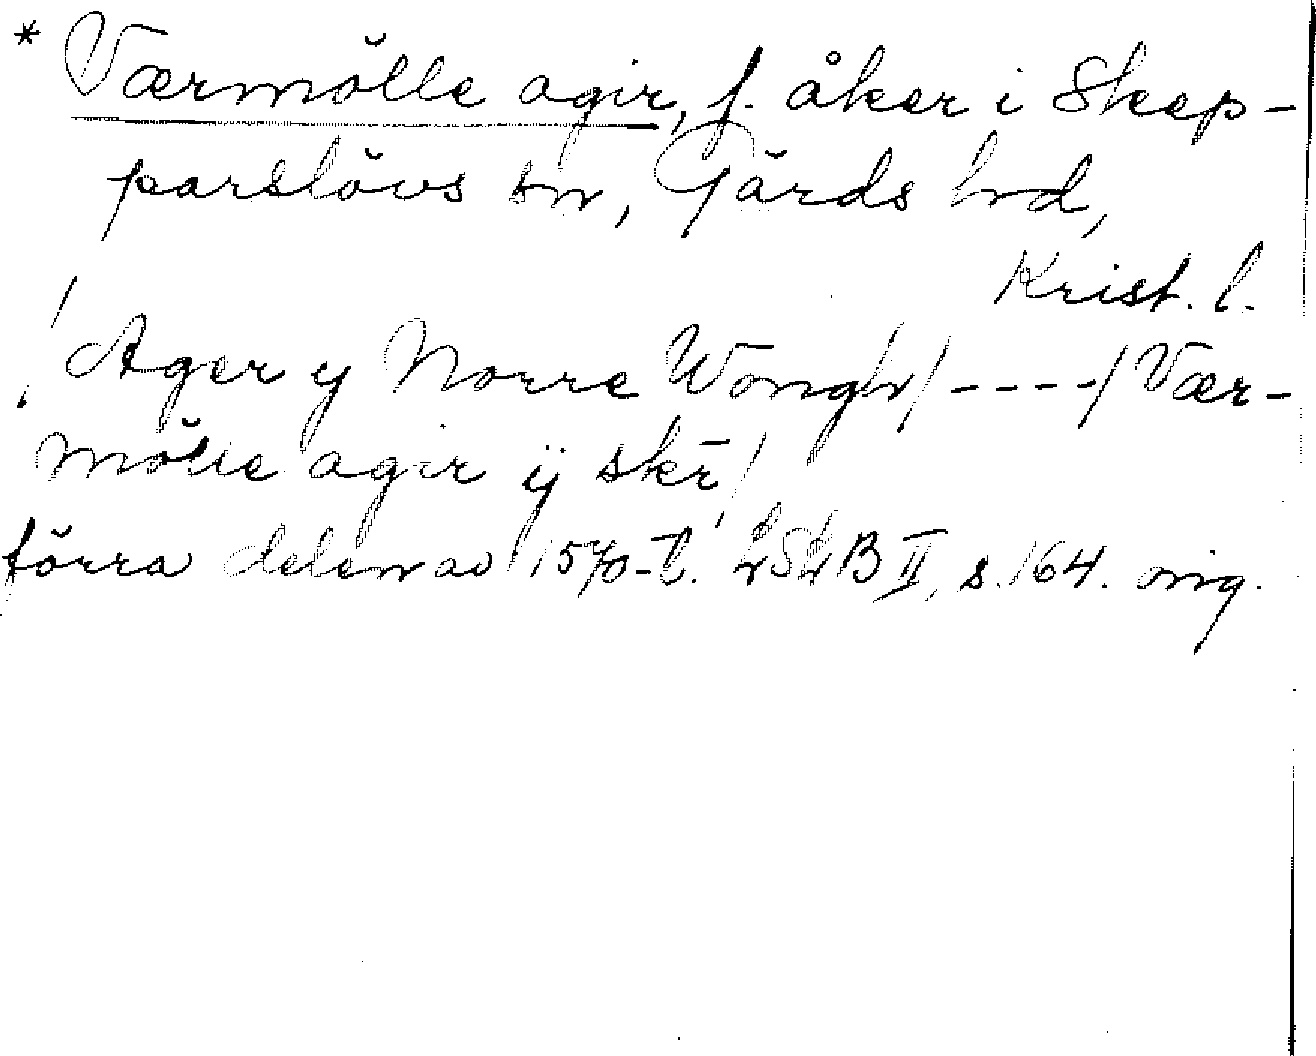 * Værmölle agir, f. åker i Skep-
parslövs sn, Gärds hd,
Krist. l.
/Ager y Norre Wongh/----/Vær-
mölle agir ÿ skr̄/
förra delen av 1570-t. LSLB II, s. 164. orig.